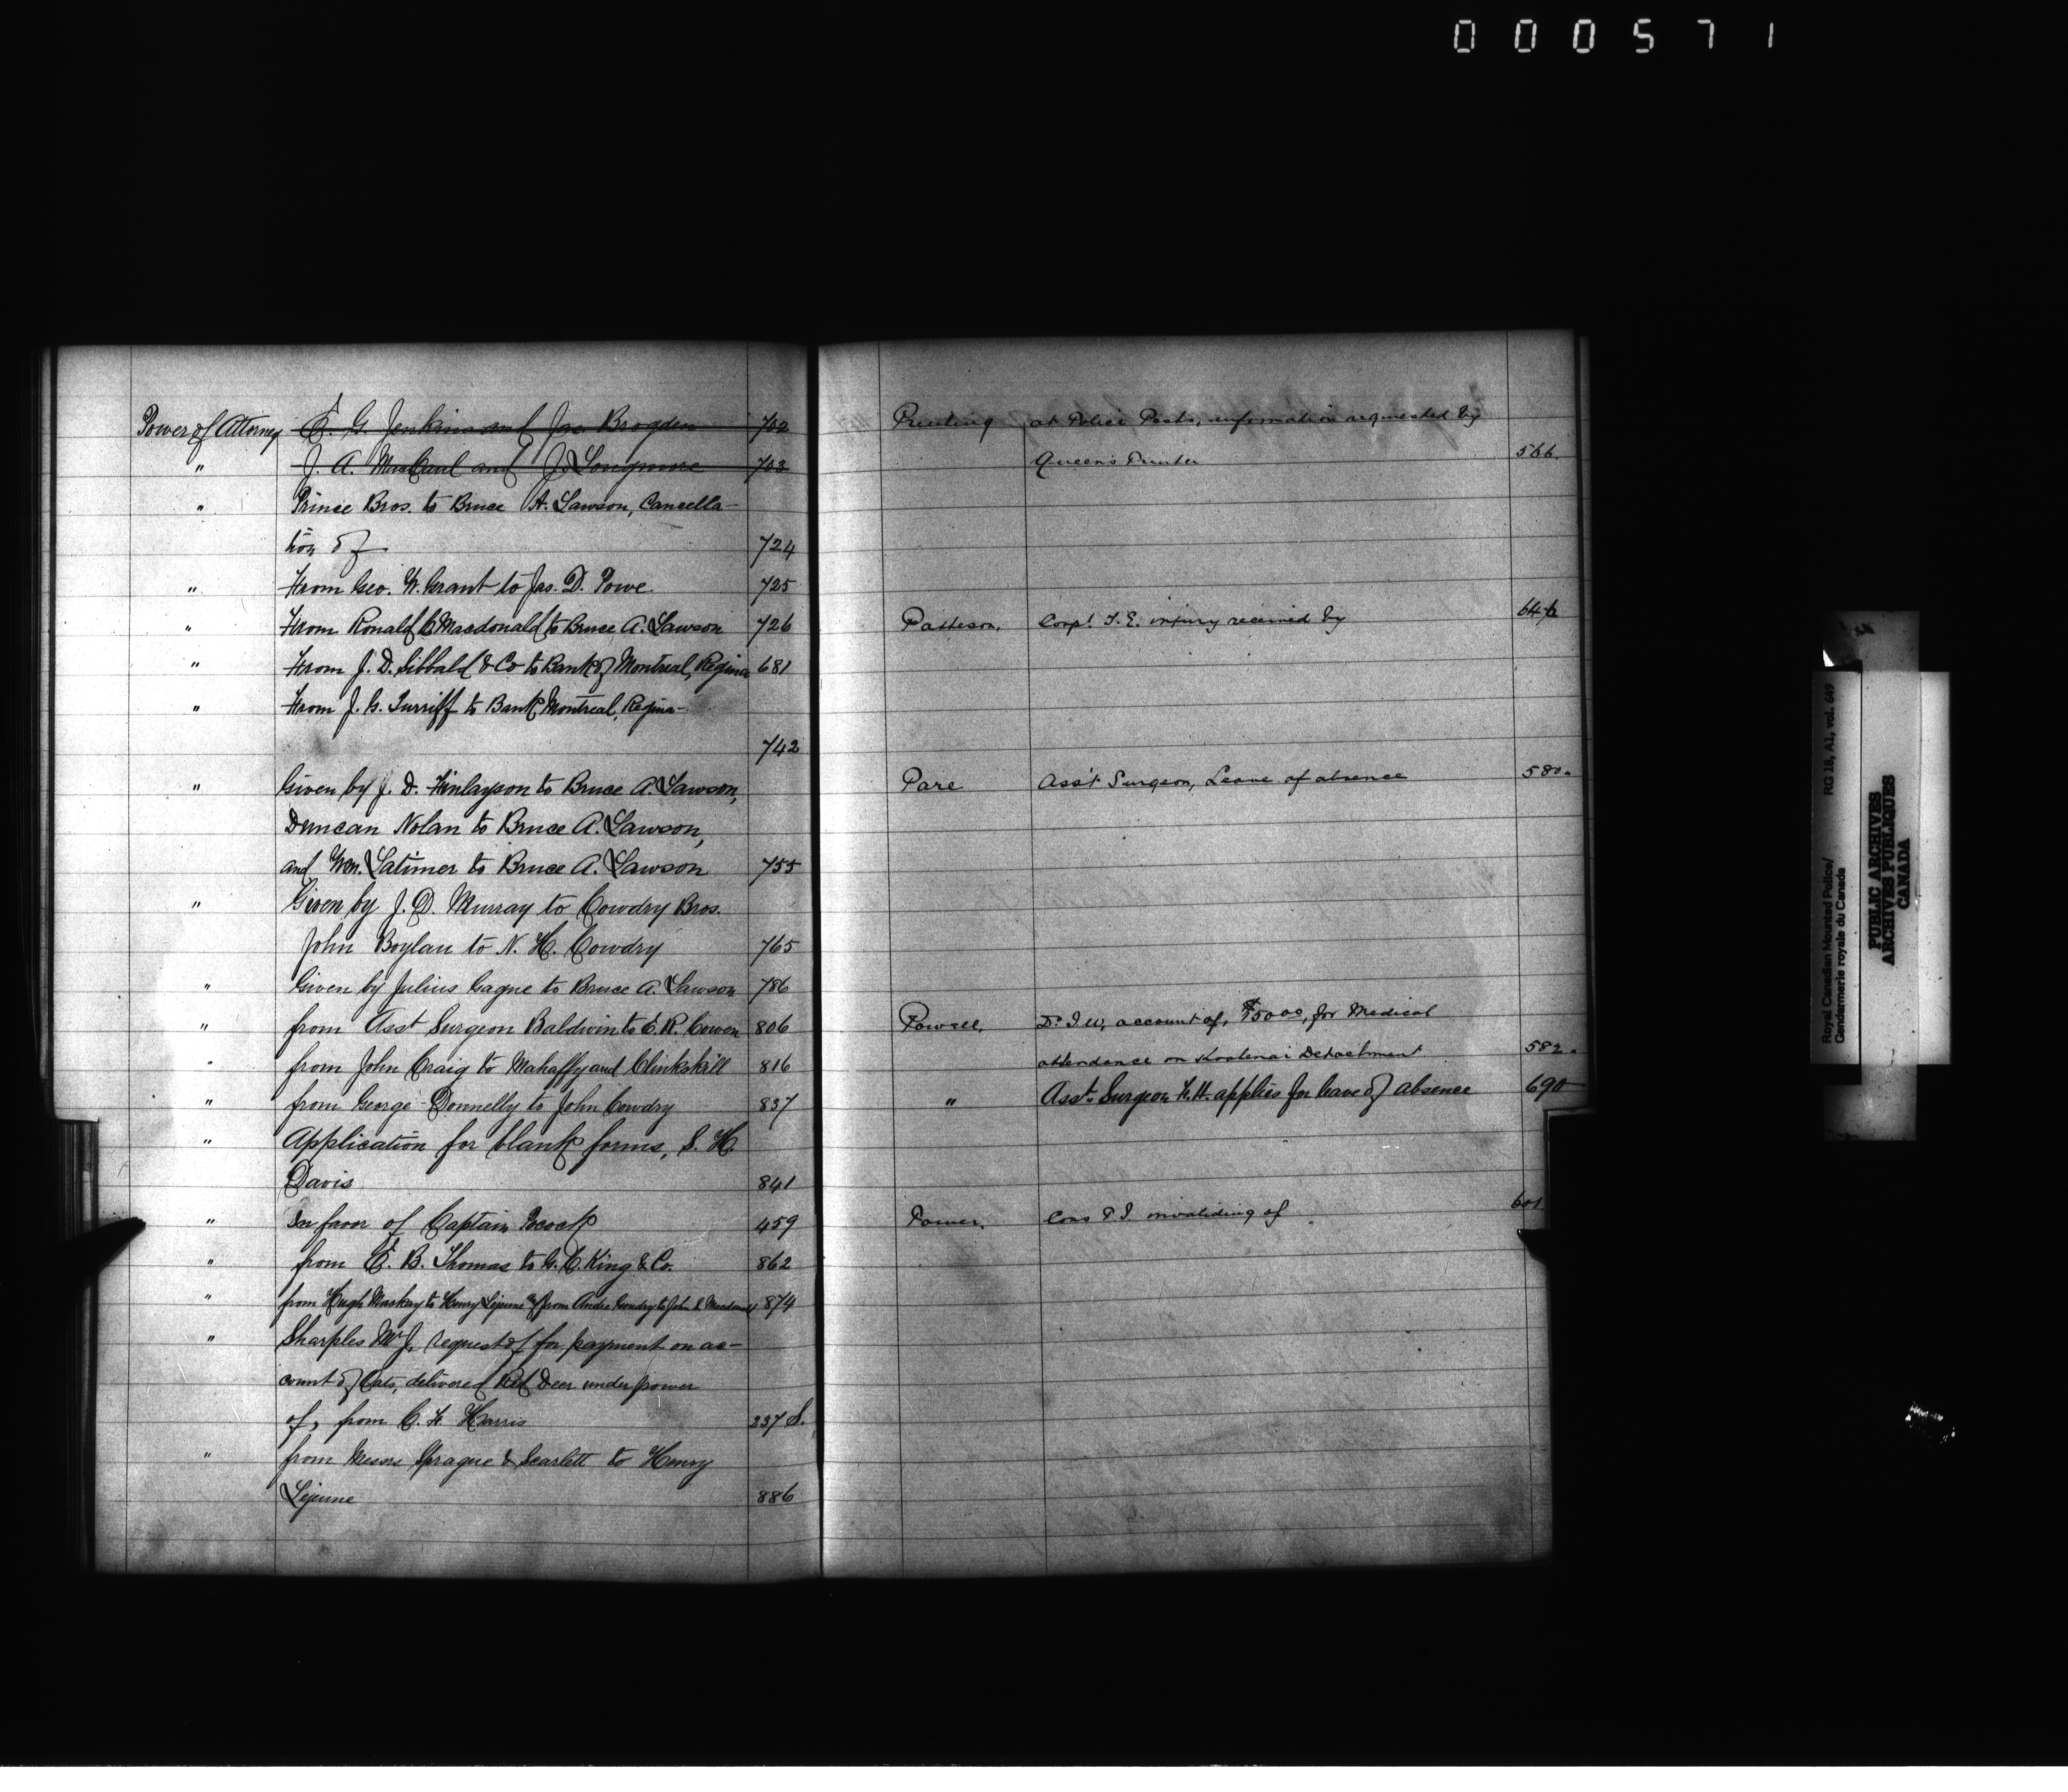 000571
Power of Attorney E. G. Jenkins and Jas Brogden 702
" J. A. MacCaul and J. Longmore 703
" Prince Bros. to Bruce A. Lawson, Cancella-
tion of 724
" From Geo. W. Grant to Jas. D. Powe 725
" From Ronald C. Macdonald to Bruce A. Lawson 726
" From J. D. Sibbald & Co to Bank of Montreal, Regina 681
" From J. G. Turriff to Bank Montreal, Regina-
742
" Given by J. D. Finlayson to Bruce A. Lawson,
Duncan Nolan to Bruce A. Lawson,
and Wm. Latimer to Bruce A. Lawson 755
" Given by J. D. Murray to Cowdry Bros.
John Boylan to N. H. Cowdry 765
" Given by Julius Gagne to Bruce A. Lawson 786
" from Asst Surgeon Baldwin to E. R. Cowen 806
" from John Craig to Mahaffy and Clinkskill 816
" from George Donnelly to John Cowdry 837
" Application for blank forms, S. H.
Davis 841
" In favor of Captain Pocock 459
" from E. B. Thomas to G. C. King & Co. 862
" from Hugh Mackay to Henry Lejeune & from Andre to John 874
" Sharples Mr J, request of for payment on ac-
count of Oats, delivered Red Deer under power
of, from C. F. Harris 237 S.
" from Messrs Sprague & Scarlett to Henry
Lejeune 886
Printing at Police Posts, information requested by
Queen's Printer 566.
Patteson, Corpl. T. E. injury received by
Pare Ass't Surgeon, Leave of absence 580.
Powell, Dr. I. W, account of, $50.00, for Medical
attendence on Kootenai Detachment 582.
" Asst. Surgeon F. H. applies for leave of absence 690
Power, Cons P J invaliding of 601
Royal Canadian Mounted Police/
Gendarmerie royale du Canada
RG 18, A1, vol. 649
PUBLIC ARCHIVES
ARCHIVES PUBLIQUES
CANADA